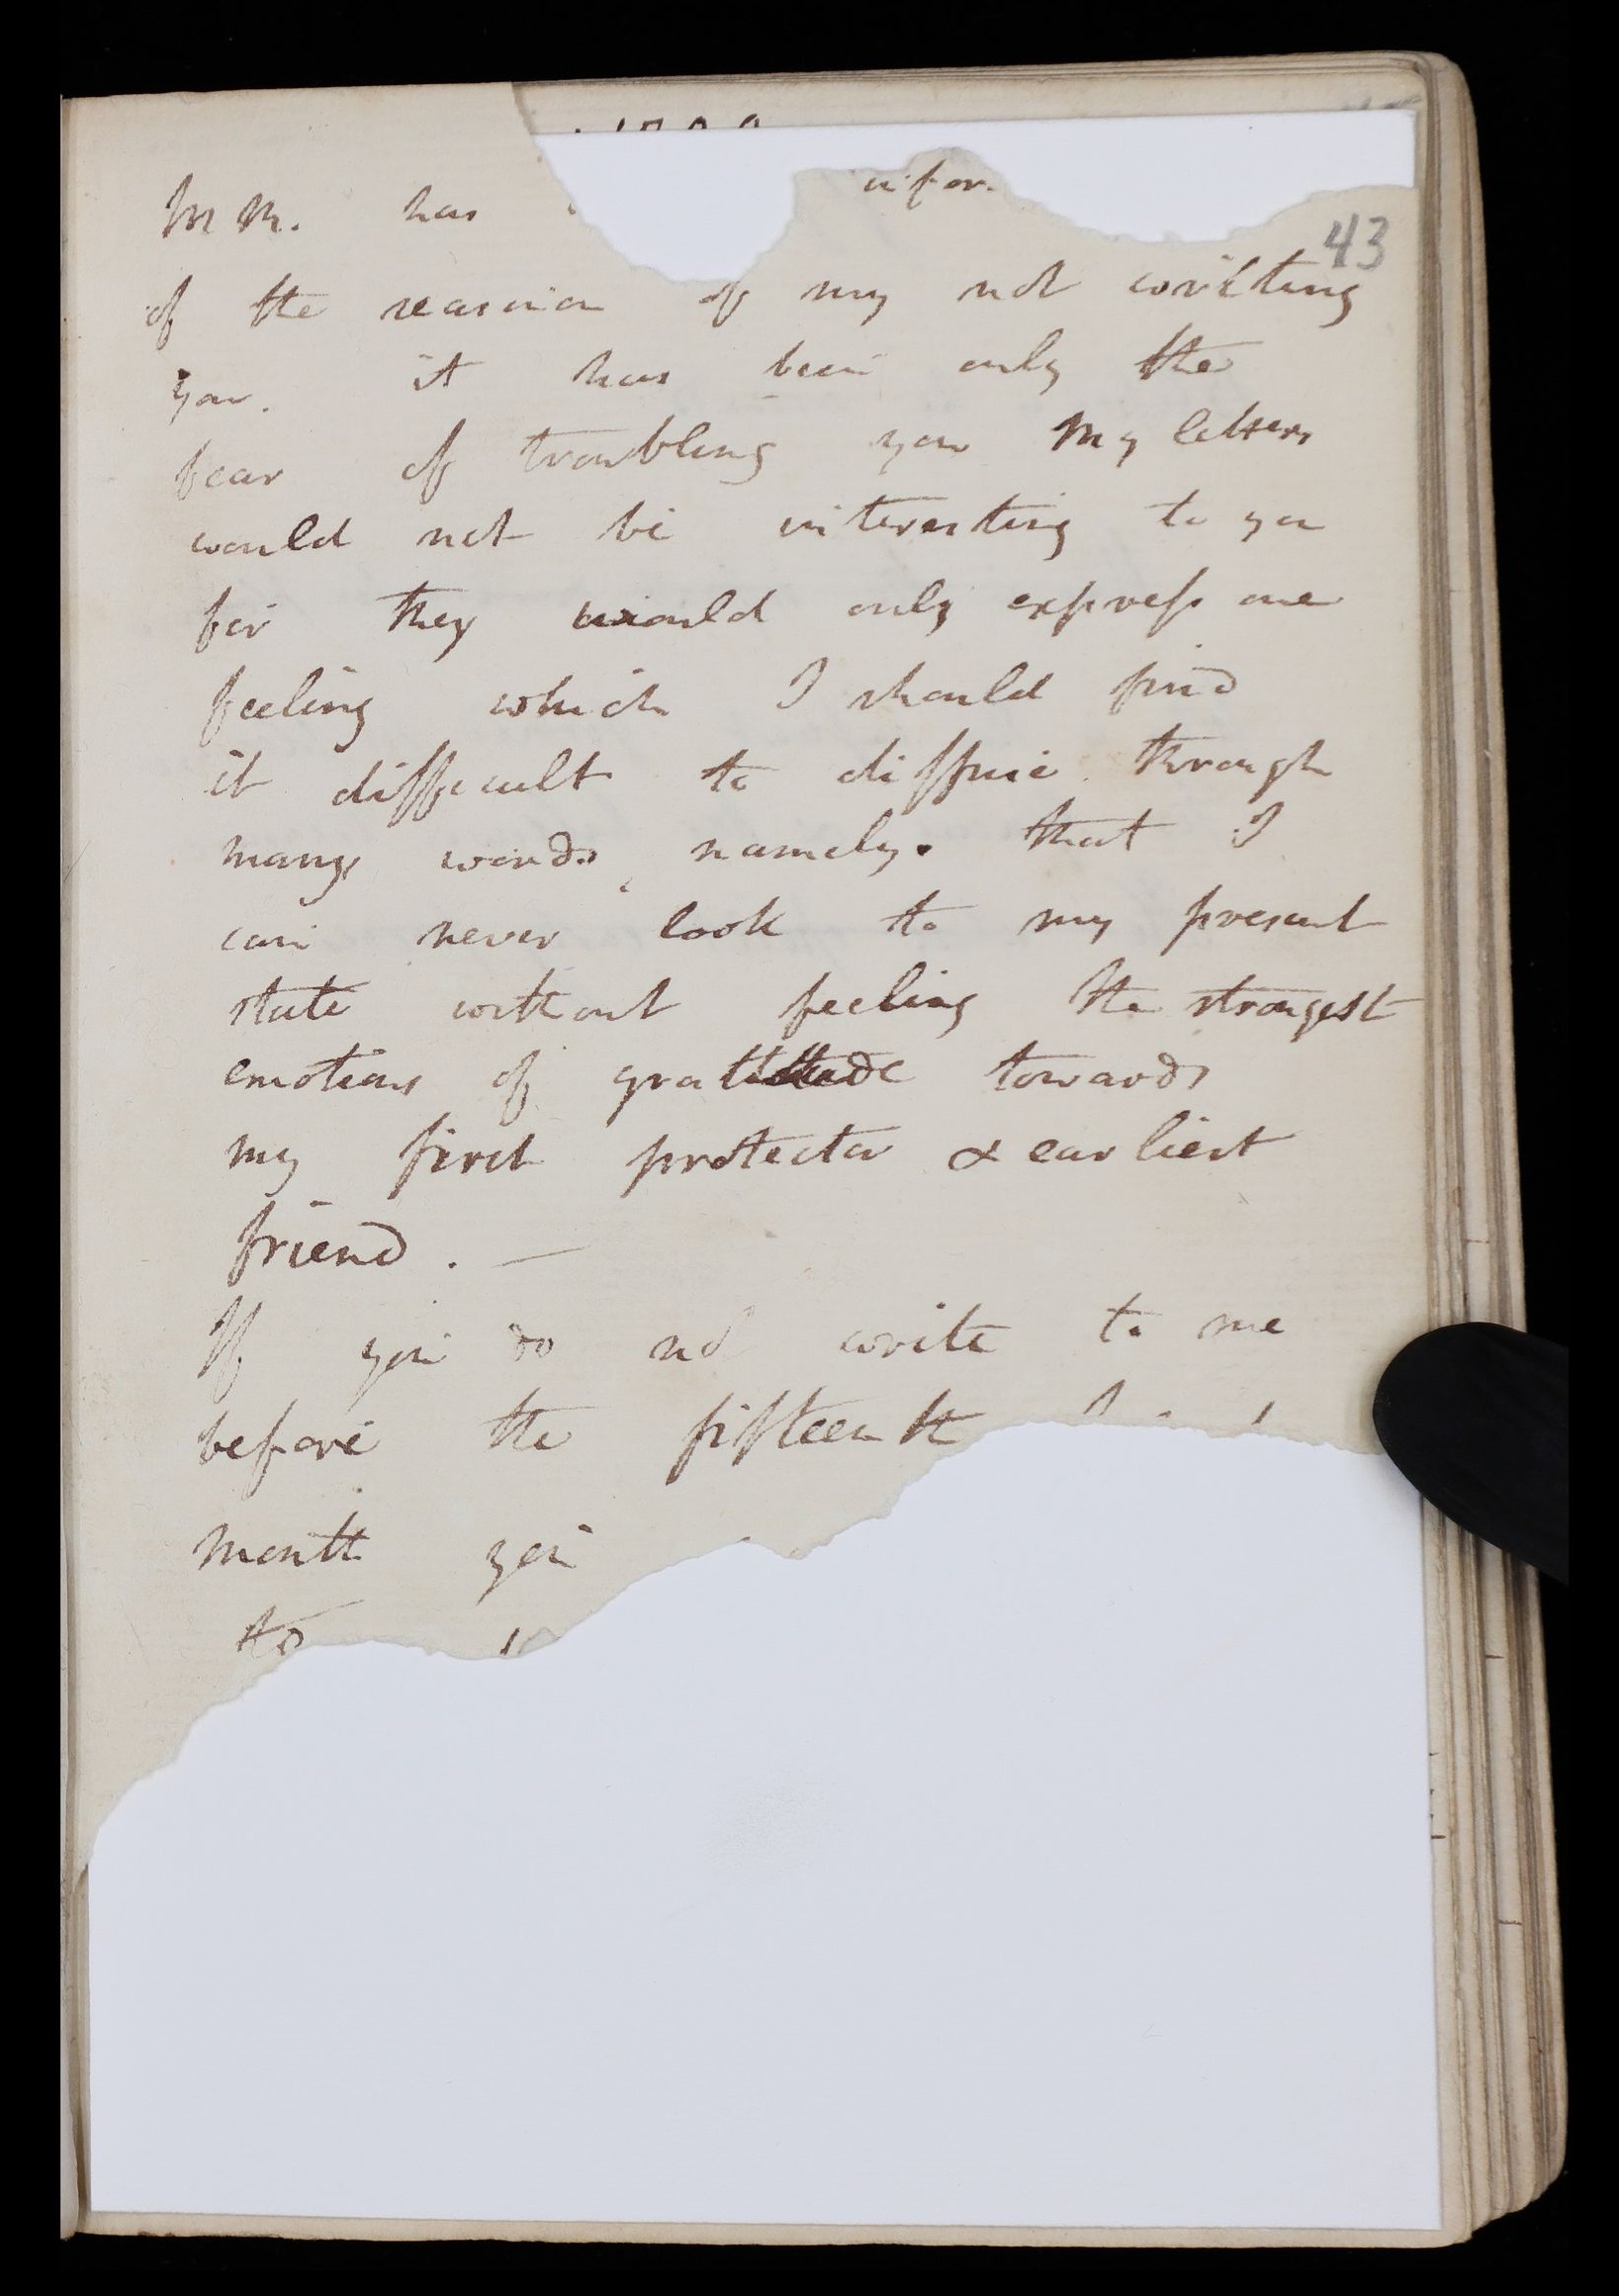 43
M M. has infor
of the reason of my not writing
you. it has been only the
fear of troubling you My letters
would not be interesting to you
for they would only express one
feeling which I should find
it difficult to diffuse through
many words, namely. that I
can never look to my present
state without feeling the strongest
emotions of gratitude towards
my first protector & earliest
friend. —
If you do not write to me
before the fifteenth
month you
to